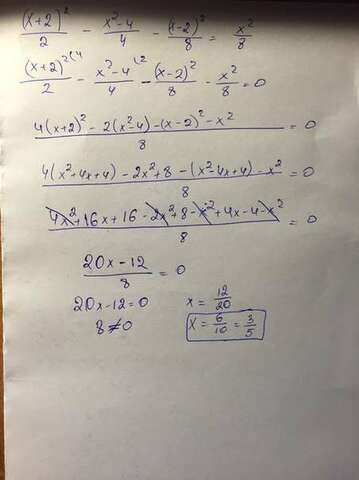 (x+2)²/2 - x²-4/4 - (x-2)²/8 = x²/8
(x+2)²⁽⁴/2 - x²-4⁽²/4 - (x-2)²/8 - x²/8 = 0
4(x+2)² - 2(x²-4) - (x-2)² - x²/8 = 0
4(x²+4x+4) - 2x²+8 - (x²-4x+4) - x²/8 = 0
4x²+16x+16 - 2x²+8 - x²+4x-4-x²/8 = 0
20x-12/8 = 0
20x-12=0 x = 12/20
8≠0 x = 6/10 = 3/5